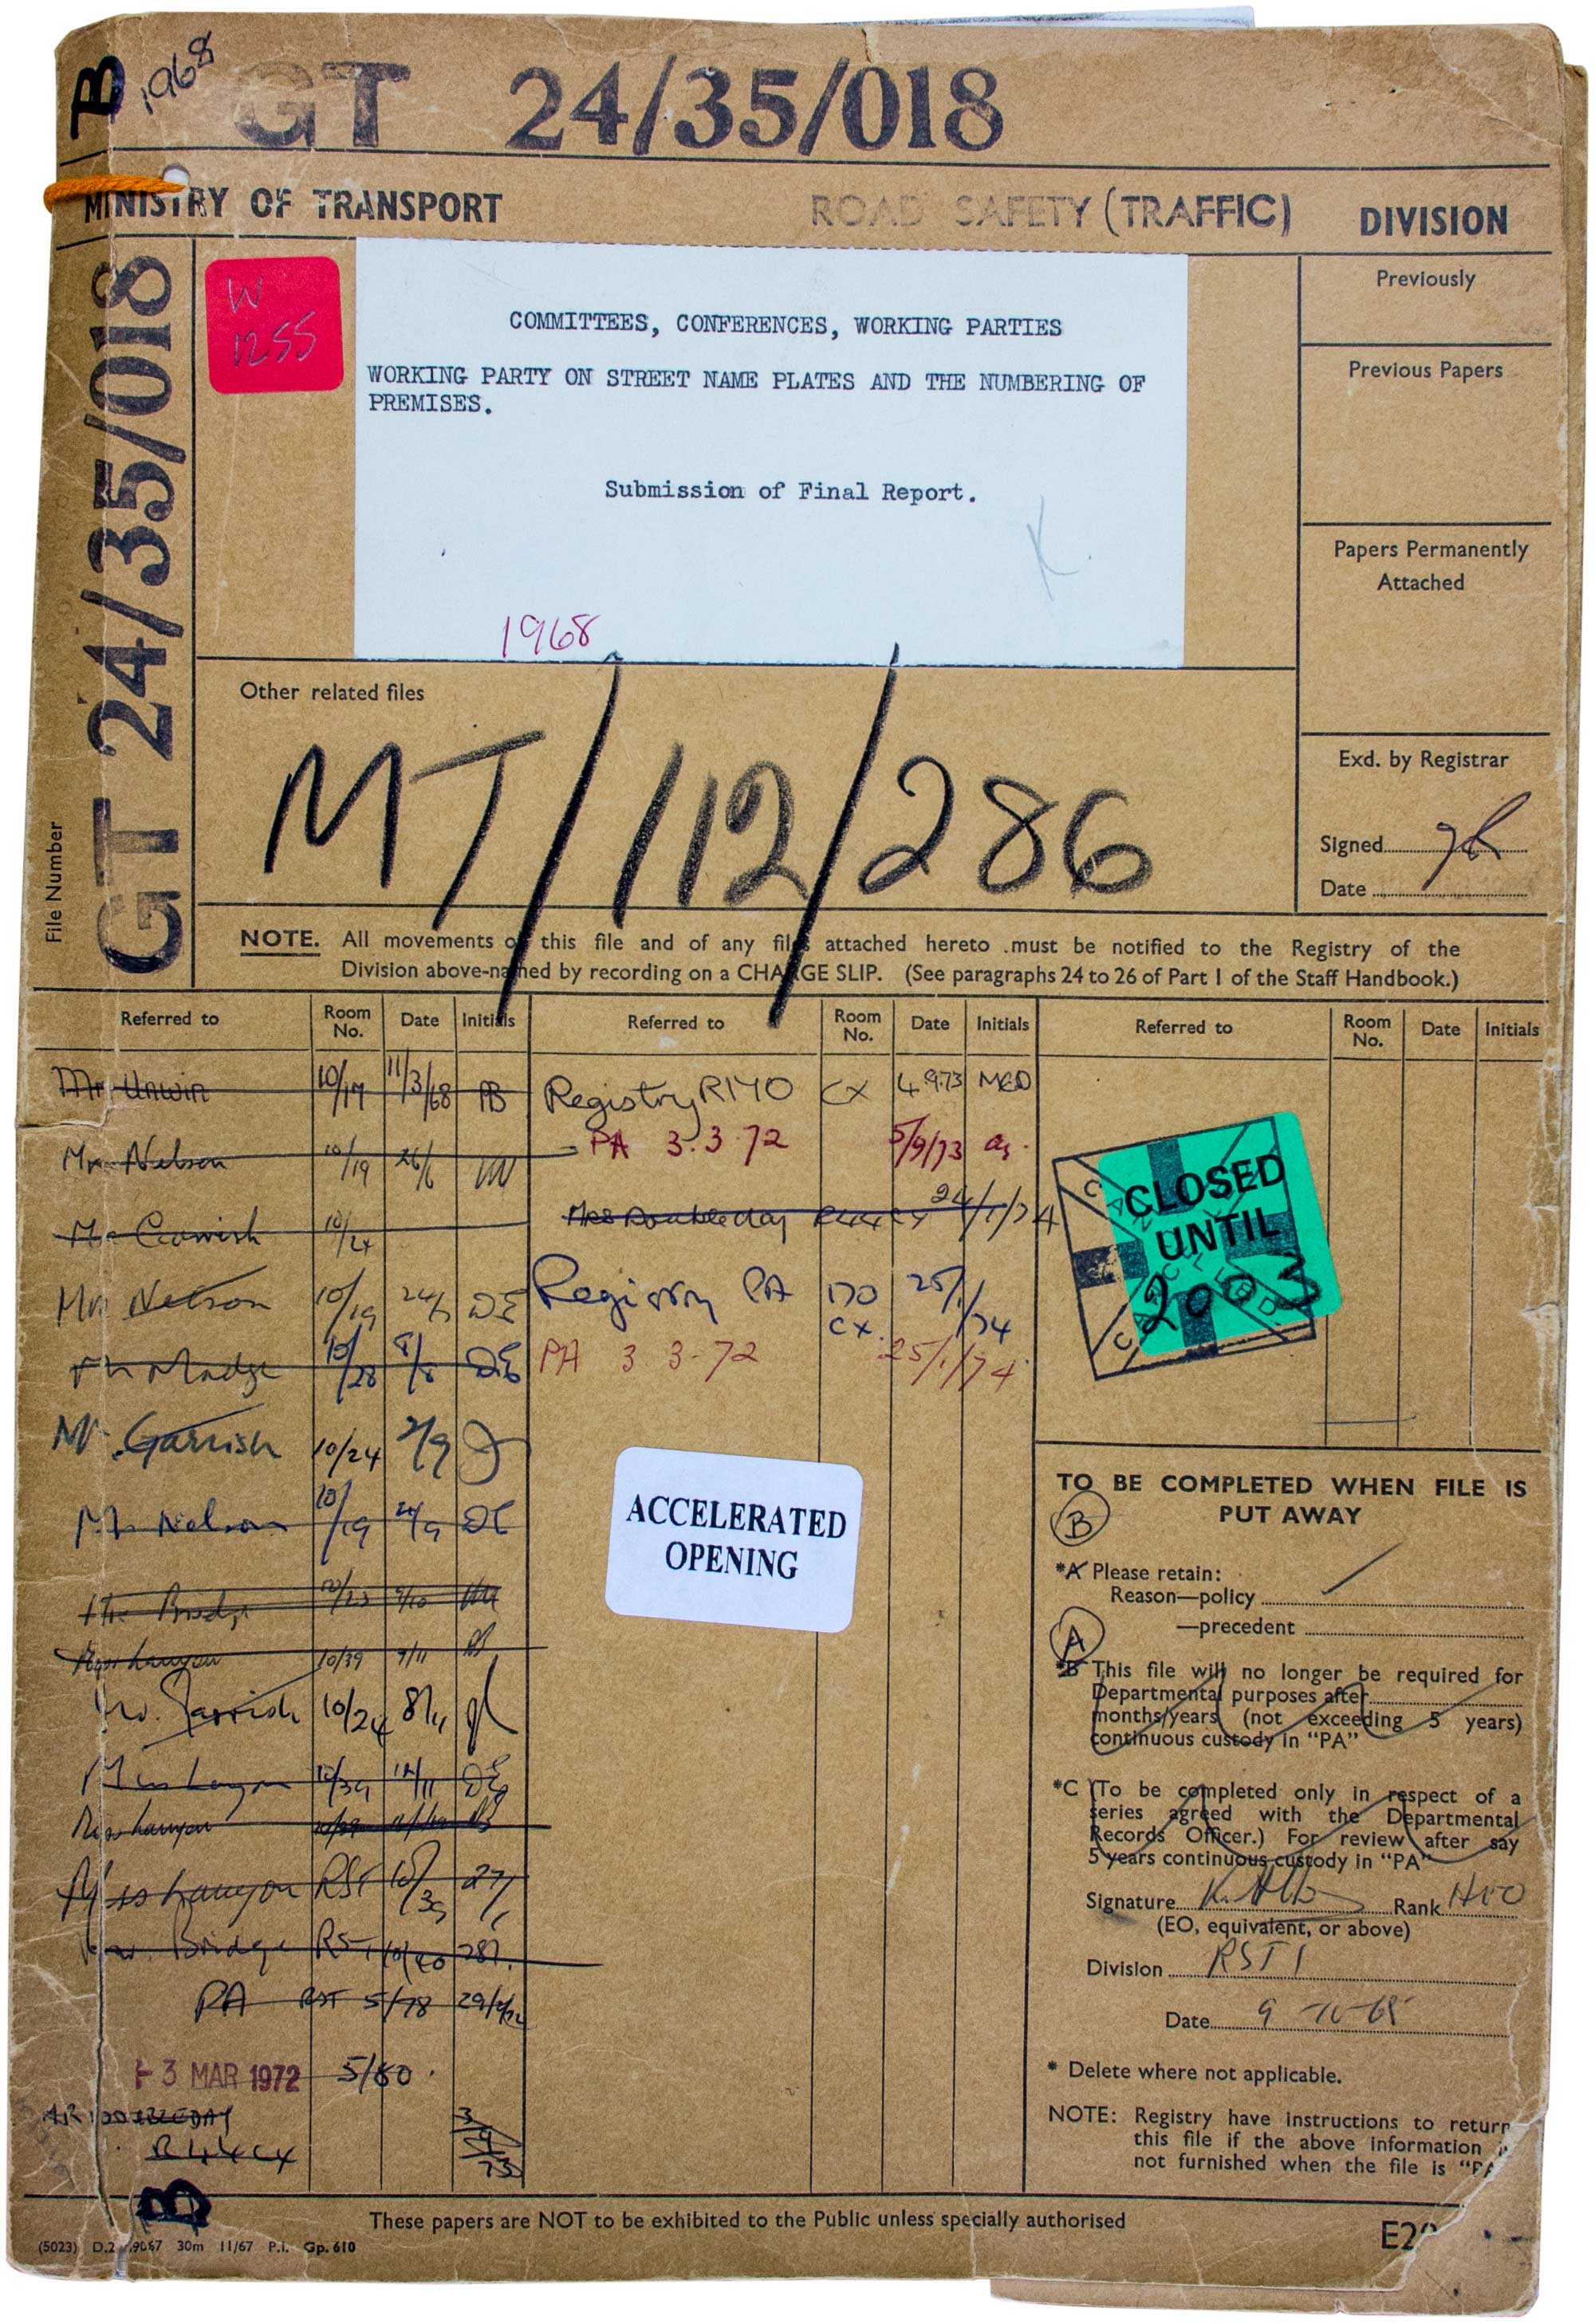 B 1968 GT 24/35/018
MINISTRY OF TRANSPORT ROAD SAFETY (TRAFFIC) DIVISION
File Number GT 24/35/018
W
1255
COMMITTEES, CONFERENCES, WORKING PARTIES
WORKING PARTY ON STREET NAME PLATES AND THE NUMBERING OF
PREMISES.
Submission of Final Report.
1968
Previously
Previous Papers
Papers Permanently
Attached
Other related files
MT/112/286
Exd. by Registrar
Signed
Date
NOTE. All movements of this file and of any files attached hereto must be notified to the Registry of the
Division above-named by recording on a CHARGE SLIP. (See paragraphs 24 to 26 of Part I of the Staff Handbook.)
Referred to Room No. Date Initials Referred to Room No. Date Initials Referred to Room No. Date Initials
Mr Unwin 10/19 11/3/68
Mr Nelson 10/19 26/6
10/24
Mr Nelson 10/19 DE
10/28 8/8 DE
Mr Garrish 10/24 2/9
Mr Nelson 10/19 DE
Mr Bridge
Miss Lanyon 10/39 9/11
Mr. Garrish 10/24 8/11
Miss Lanyon 10/39 DE
Miss Lanyon
Miss Lanyon RST 10/39
Mr. Bridge RST
PA RST 5/78
-3 MAR 1972 5/80
DOUBLEDAY
R444 CX
3/9/73
Registry R170 CX 4.9.73 MED
PA 3.3.72 5/9/73
Mrs Doubleday 24/1/74
Registry PA 170 CX. 25/1/74
PA 3 3-72 25/1/74
CLOSED
UNTIL
2003
ACCELERATED
OPENING
TO BE COMPLETED WHEN FILE IS
PUT AWAY
B
*A Please retain:
Reason—policy
—precedent
A
*B This file will no longer be required for
Departmental purposes after
months/years (not exceeding 5 years)
continuous custody in "PA"
*C (To be completed only in respect of a
series agreed with the Departmental
Records Officer.) For review after say
5 years continuous custody in "PA"
Signature Rank HEO
(EO, equivalent, or above)
Division RST 1
Date
* Delete where not applicable.
NOTE: Registry have instructions to return
this file if the above information
not furnished when the file is "PA
B
These papers are NOT to be exhibited to the Public unless specially authorised
(5023) 30m 11/67 P.I. Gp. 610